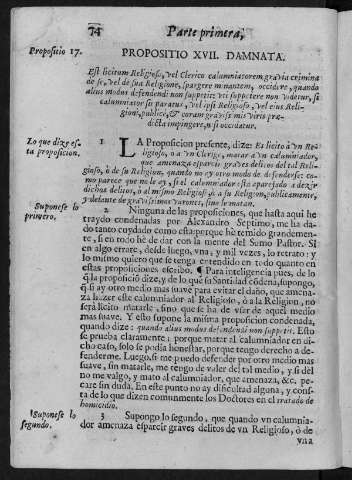 74 Parte primera,
Propositio 17.
PROPOSITIO XVII. DAMNATA.
Est licitum Religioso, vel Clerico calumniatorem gravia crimina
de se, vel de sua Religione, spargere minantem, occidere, quando
alius modus defendendi non suppetit; vti suppetere non videtur, si
calumniator sit paratus, vel ipsi Religioso, vel eius Reli-
gioni, publice, & coram gravissimis viris præ-
dicta impingere, nisi occidatur.
Lo que dize es-
ta proposicion.
1 LA Proposicion presente, dize: Es licito à vn Re-
ligioso, o à vn Clerigo, matar à vn calumniador,
que amenaza esparcir graves delitos del tal Religioso,
ò de su Religion, quanto no ay otro modo de defenderse: co-
mo parece que no le ay, si el calumniador està aparejado à dezir
dichos delitos, o al mismo Religioso, ò à su Religion, publicamente,
y delante de gravissimos varones, sino le matan.
Supones lo
primero.
2 Ninguna de las proposiciones, que hasta aqui he
traydo condenadas por Alexandro Septimo, me ha da-
do tanto cuydado como esta: porque hè temido grandemen-
te, si en todo hè de dar con la mente del Sumo Pastor. Si
en algo errare, desde luego, vna, y mil vezes, lo retrato: y
lo mismo quiero que se tenga entendido en todo quanto en
estas proposiciones escribo. ¶ Para inteligencia pues, de lo
q̃ la proposició dize, y de lo que su Santidad cõdena, supongo,
q̃ si ay otro medio mas suave para evitar el daño, que amena-
za hazer este calumniador al Religioso, ò à la Religion, no
serà licito matarle, sino que se ha de vsar de aquel medio
mas suave. Y esto supone la misma proposicion condenada,
quando dize: quando alius modus defendendi non suppetit. Esto
se prueba claramente: porque matar al calumniador en di-
cho caso, solo se podia honestar, porque tengo derecho a de-
fenderme. Luego, si me puedo defender por otro medio mas
suave, sin matarle, me tengo de valer del tal medio, y si dèl
no me valgo, y mato al calumniador, que amenaza, &c. pe-
care sin duda. En este punto no ay dificultad alguna, y cons-
ta de lo que dizen comunmente los Doctores en el tratado de
homicidio.
Supones lo
segundo.
3 Supongo lo segundo, que quando vn calumnia-
dor amenaza esparcir graves delitos de vn Religioso, ò de
vna